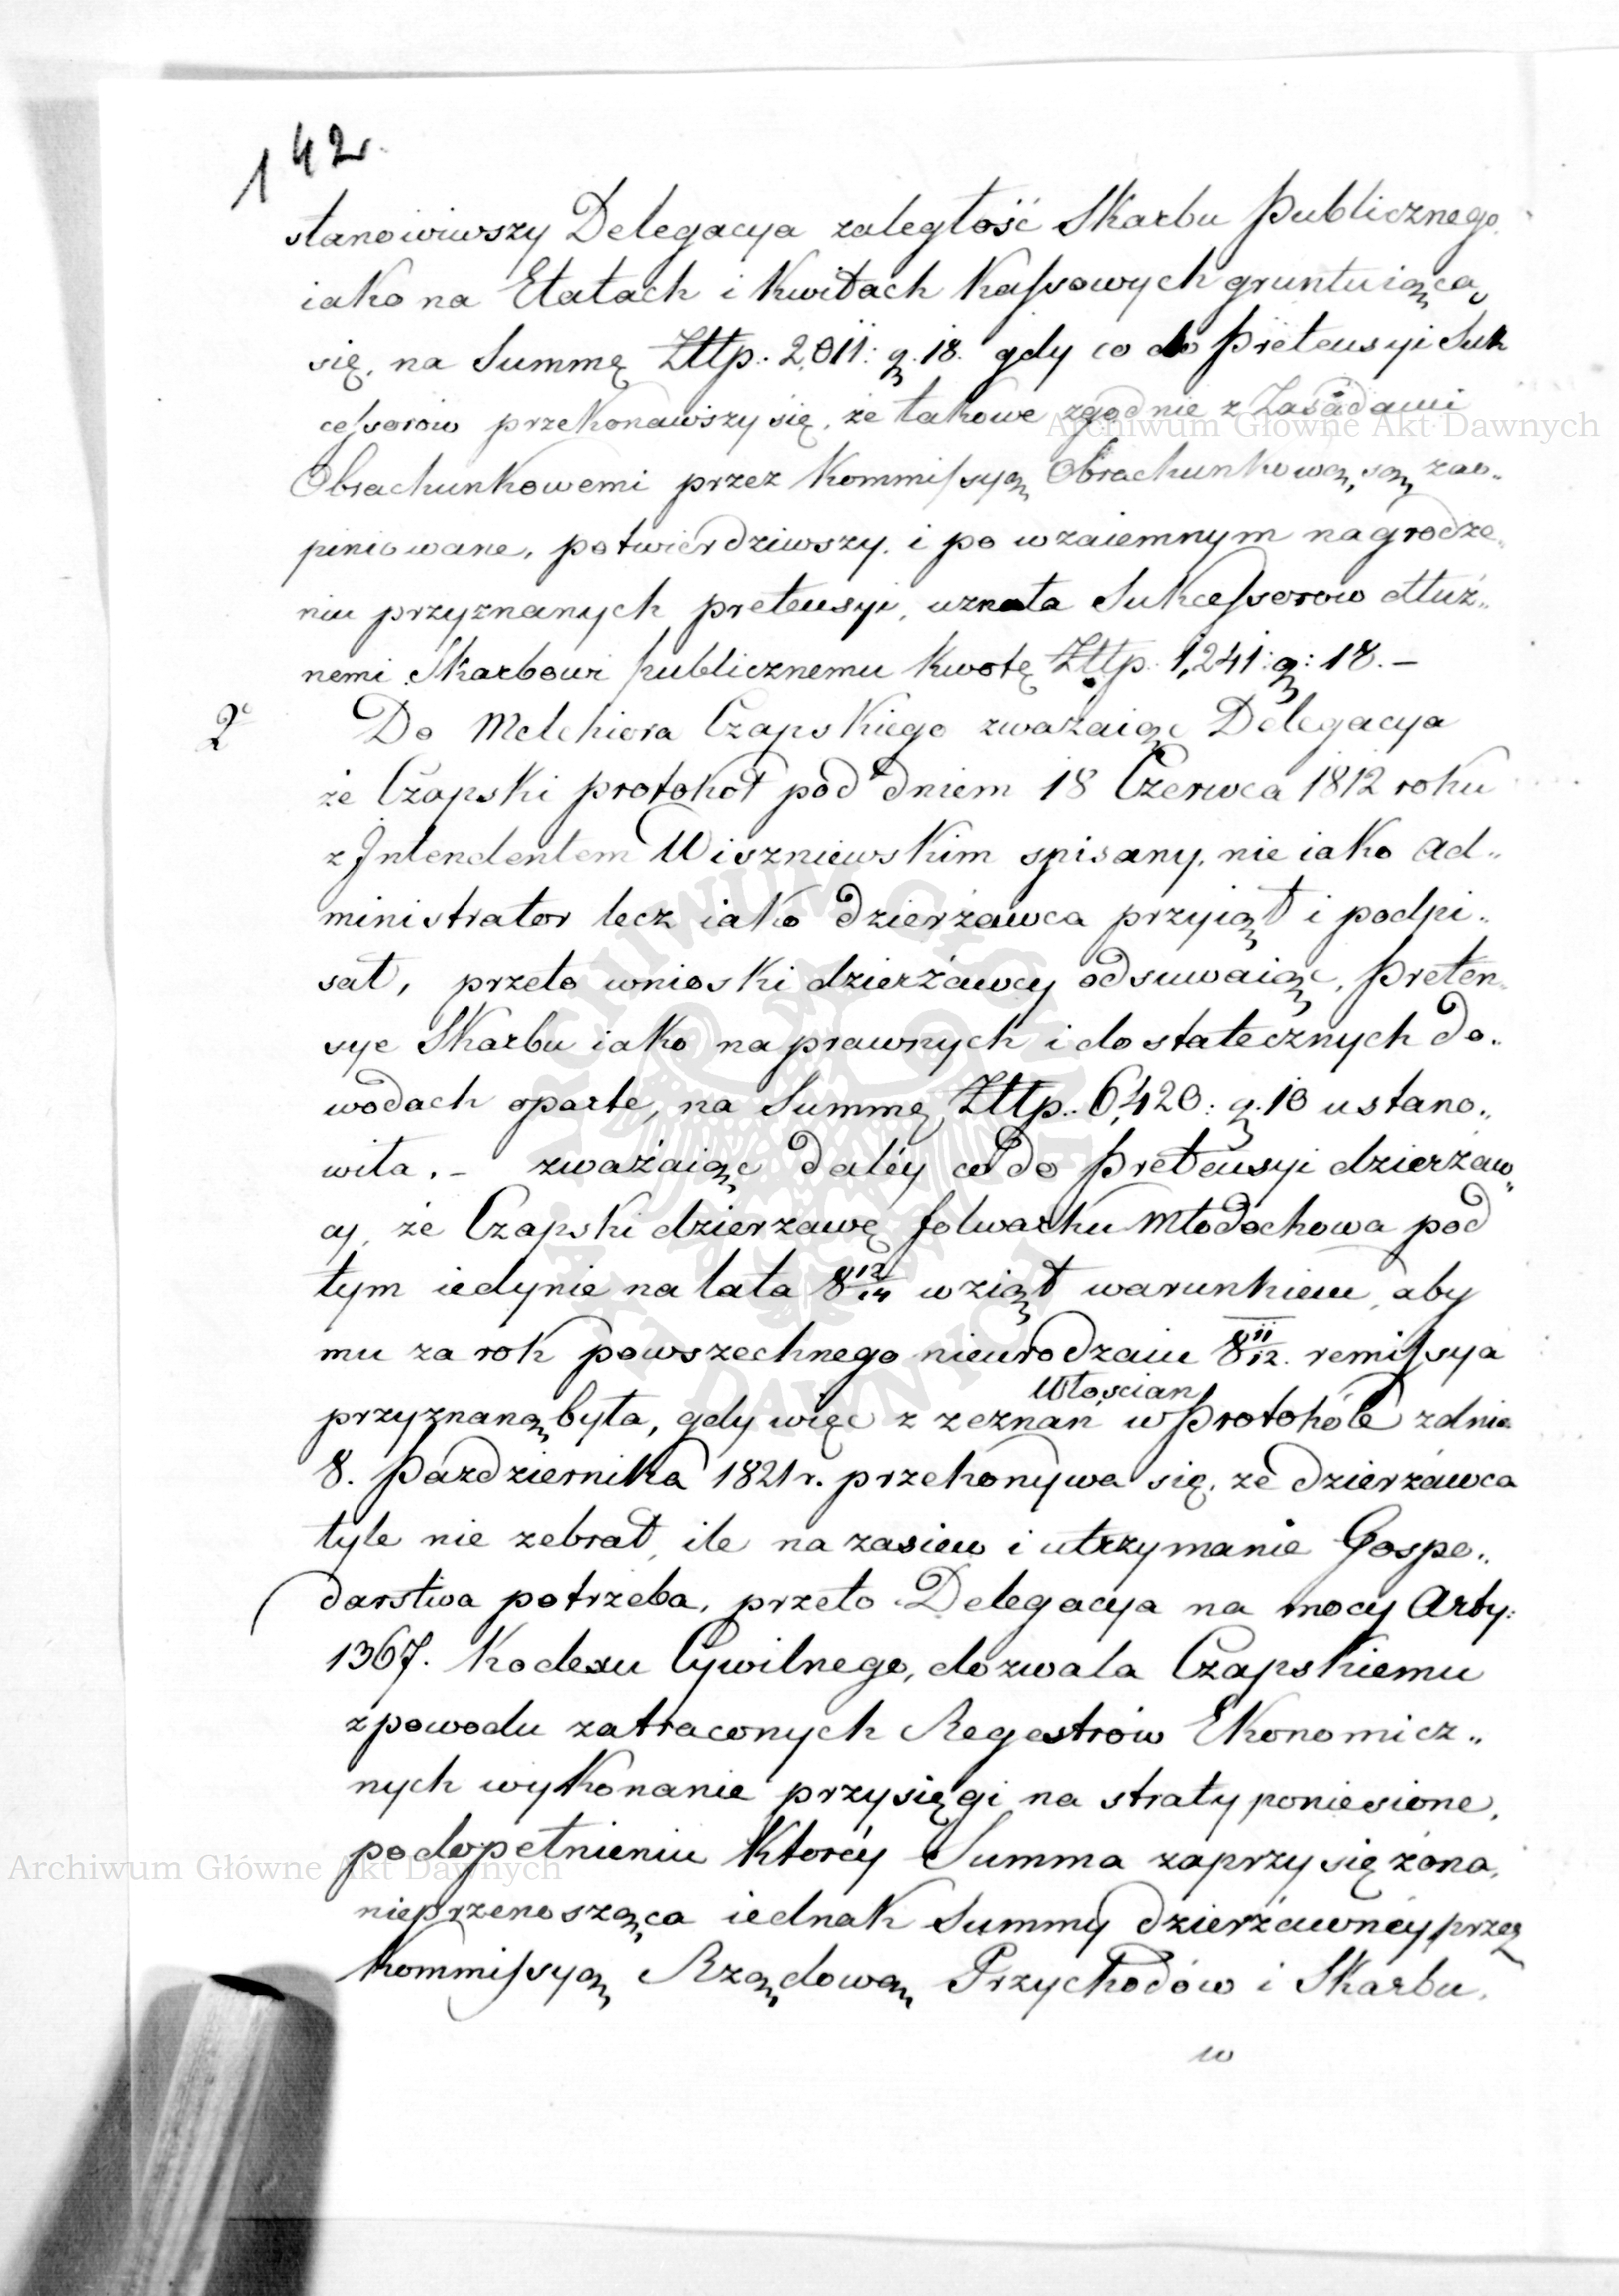 142.
stanowiwszy Delegacya zaległość Skarbu Publicznego,
iako na Etatach i Kwitach Kassowych gruntuiącą
się, na Summę Złtp. 2,011: g. 18. gdy co do Pretensyi Suk
cessorów przekonawszy się, że takowe zgodnie z Zasadami
Obrachunkowemi przez Kommissyą Obrachunkową, są zao„
piniowane, potwierdziwszy, i po wzaiemnym nagrodze„
niu przyznanych pretensyi, uznała Sukcessorow dłuż„
nemi Skarbowi publicznemu kwotę Złtp. 1,241: g: 18. –
2e Do Melchiora Czapskiego zważaiąc Delegacya
że Czapski protokół pod dniem 18 Czerwca 1812 roku
z Intendentem Wiszniewskim spisany, nie iako Ad„
ministrator lecz iako dzierżawca przyiął i podpi„
sał, przeto wnioski dzierżawcy odsuwaiąc, Preten„
sye Skarbu iako na prawnych i dostatecznych do„
wodach oparte, na Summę Złtp. 6,420: g. 10 ustano„
wiła. – zważaiąc daléy co do Pretensyi dzierżaw„
cy, że Czapski dzierzawę folwarku Młodochowa pod
tym iedynie na lata 812/14 wziął warunkiem, aby
mu za rok powszechnego nieurodzaiu 811/12. remissya
przyznaną była, gdy więc z zeznań Włościan w Protokóle z dnia
8. Października 1821 r. przekonywa się, że dzierżawca
tyle nie zebrał, ile na zasiew i utrzymanie Gospo„
darstwa potrzeba, przeto Delegacya na mocy Arty:
1367. Kodexu Cywilnego, dozwala Czapskiemu
z powodu zatraconych Regestrów Ekonomicz„
nych wykonanie przysięgi na straty poniesione,
po dopełnieniu któréy Summa zaprzysiężona,
nieprzenosząca iednak Summy dzierżawnéy przez
Kommissyą Rządową Przychodów i Skarbu,
w
Archiwum Główne Akt Dawnych
Archiwum Główne Akt Dawnych
ARCHIWUM GŁÓWNE AKT DAWNYCH